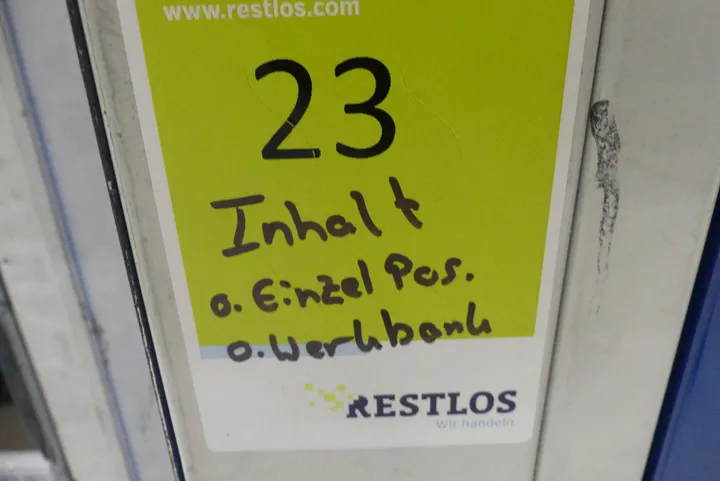 www.restlos.com
23
Inhalt
o. Einzel Pos.
o. Werkbank
RESTLOS
Wir handeln